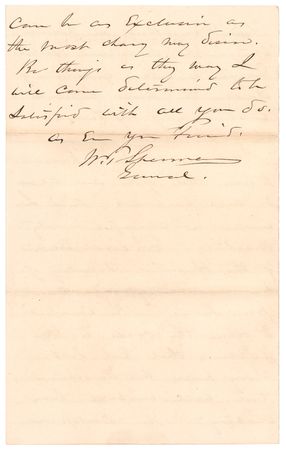 can be as exclusive as
the most chary may desire.
Be things as they may I
will come determined to be
satisfied with all you do.
as Ever yr friend.
W.T. Sherman
General.